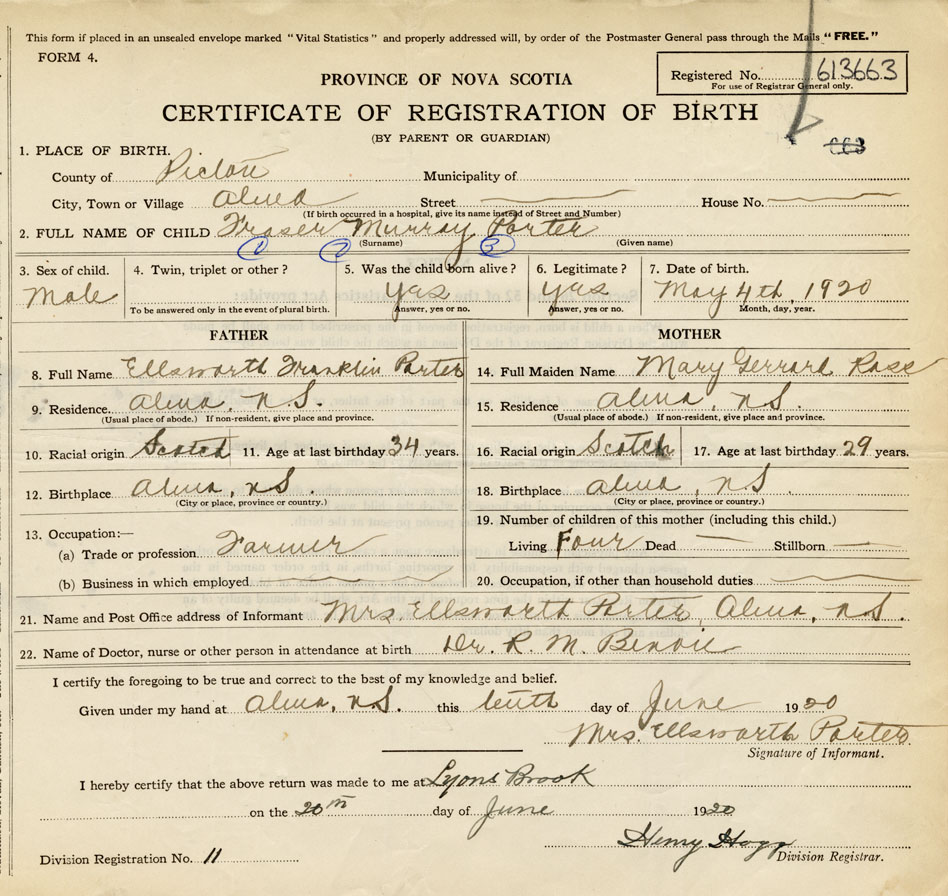 This form if placed in an unsealed envelope marked "Vital Statistics" and properly addressed will, by order of the Postmaster General pass through the Mails "FREE."
FORM 4.
PROVINCE OF NOVA SCOTIA
Registered No. 613663
For use of Registrar General only.
CERTIFICATE OF REGISTRATION OF BIRTH
(BY PARENT OR GUARDIAN)
663
1. PLACE OF BIRTH.
County of Pictou Municipality of
City, Town or Village Alma Street House No.
(If birth occurred in a hospital, give its name instead of Street and Number)
2. FULL NAME OF CHILD Fraser Murray Porter
(Surname) (Given name)
1 2 3
3. Sex of child. 4. Twin, triplet or other? 5. Was the child born alive? 6. Legitimate? 7. Date of birth.
Male Yes Yes May 4th, 1920
To be answered only in the event of plural birth. Answer, yes or no. Answer, yes or no. Month, day, year.
FATHER MOTHER
8. Full Name Ellsworth Franklin Porter 14. Full Maiden Name Mary Gerrard Ross
9. Residence. Alma, N.S. 15. Residence Alma, N.S.
(Usual place of abode.) If non-resident, give place and province. (Usual place of abode.) If non-resident, give place and province.
10. Racial origin Scotch 11. Age at last birthday 34 years. 16. Racial origin Scotch 17. Age at last birthday 29 years.
12. Birthplace Alma, N.S. 18. Birthplace Alma, N.S.
(City or place, province or country.) (City or place, province or country.)
13. Occupation:— 19. Number of children of this mother (including this child.)
(a) Trade or profession Farmer Living Four Dead Stillborn
(b) Business in which employed 20. Occupation, if other than household duties
21. Name and Post Office address of Informant Mrs. Ellsworth Porter, Alma, N.S.
22. Name of Doctor, nurse or other person in attendance at birth Dr. R. M. Benvie
I certify the foregoing to be true and correct to the best of my knowledge and belief.
Given under my hand at Alma, N.S. this tenth day of June 1920
Mrs. Ellsworth Porter
Signature of Informant.
I hereby certify that the above return was made to me at Lyons Brook
on the 20th day of June 1920
Henry Hogg
Division Registration No. 11 Division Registrar.